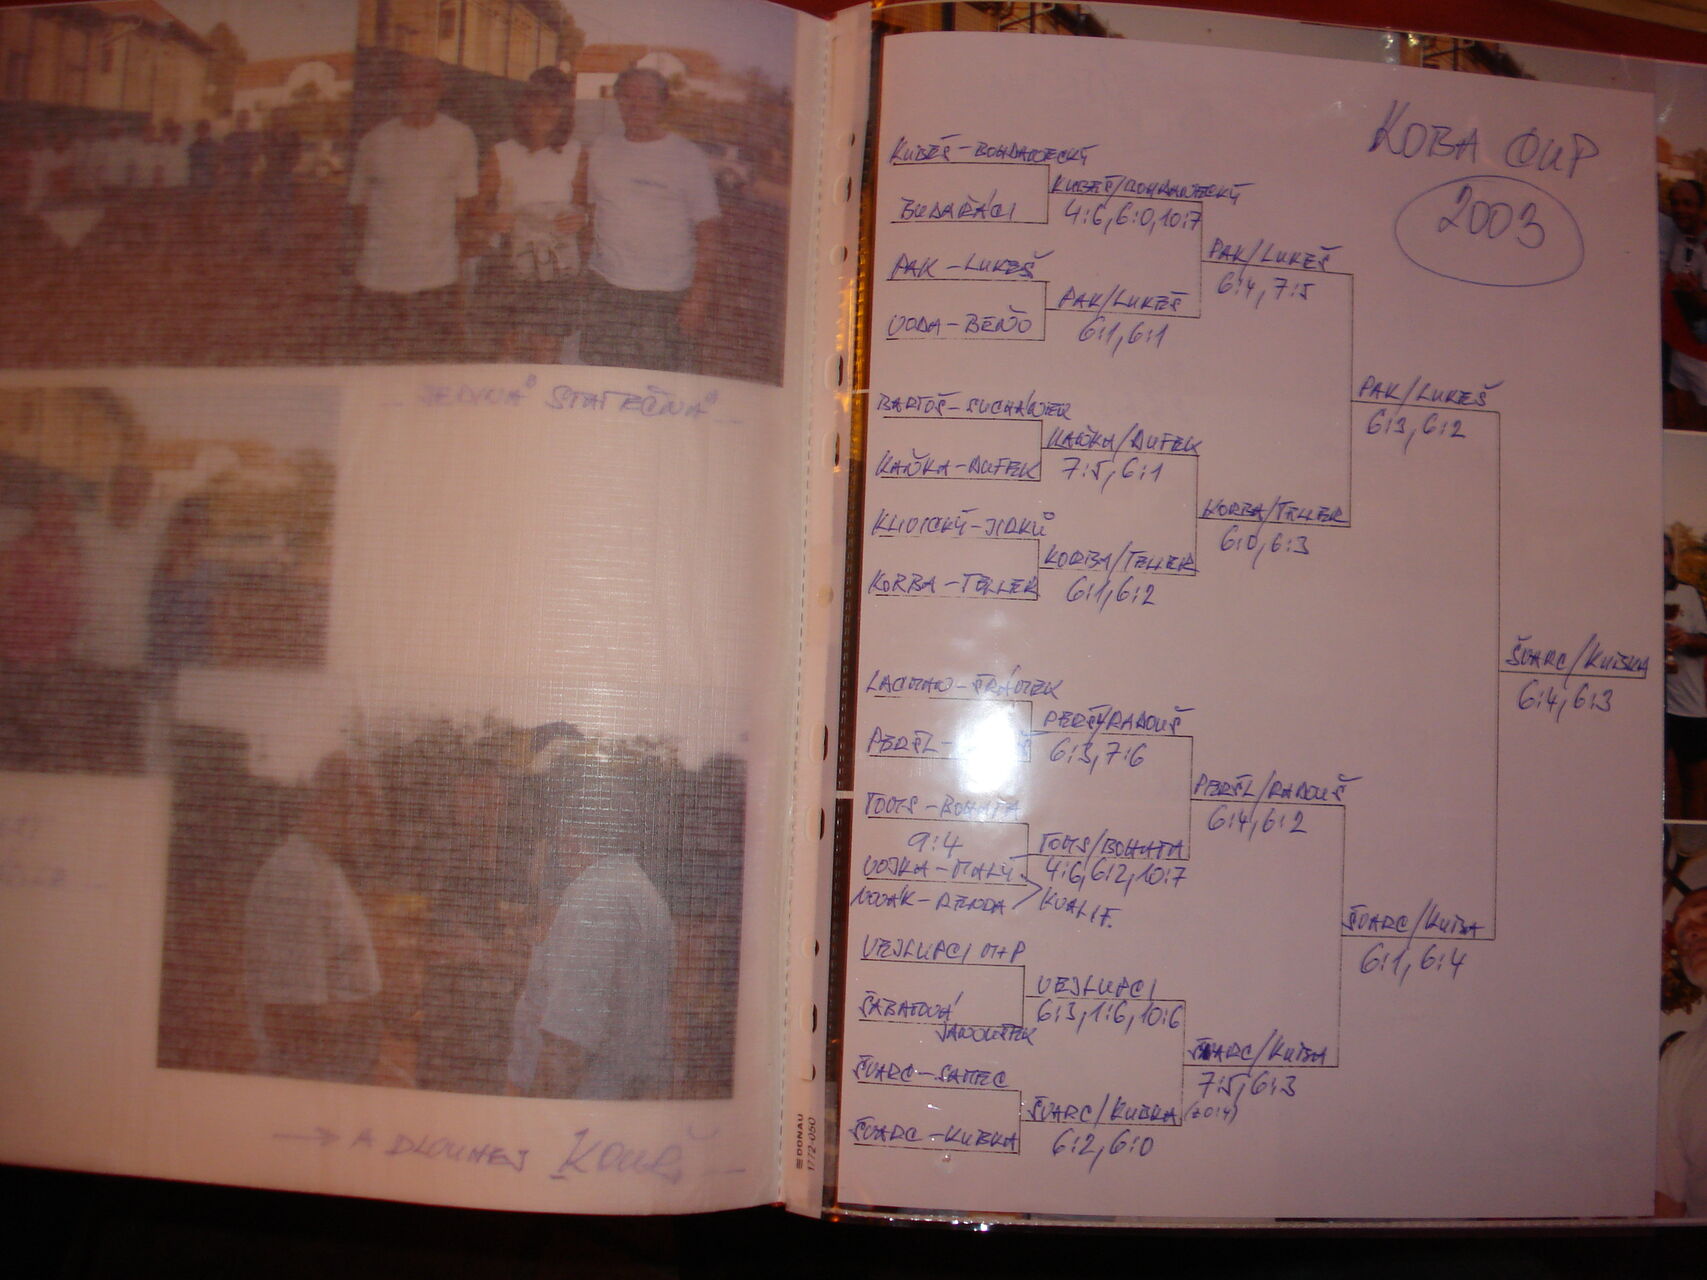 JEDINÁ STATEČNÁ
→ A DLOUHEJ
DONAU
1772-050
KOBA CUP
2003
KUBEŠ - BOHDANECKÝ
KUBEŠ/BOHDANECKÝ
BUDAŘÁCI
4:6, 6:0, 10:7
PAK/LUKEŠ
PAK - LUKEŠ
6:4, 7:5
PAK/LUKEŠ
VODA - BEŇO
6:1, 6:1
PAK/LUKEŠ
BARTOŠ - SUCHÁNEK
6:3, 6:2
KAŇKA/DUFEK
KAŇKA - DUFEK
7:5, 6:1
KORBA/TELLER
KLIVICKÝ - JIRKŮ
6:0, 6:3
KORBA/TELLER
KORBA - TELLER
6:1, 6:2
ŠVARC/KUBKA
6:4, 6:3
LACMAN - ŠRÁMEK
PERŠL/RADOUŠ
PERŠL -
6:3, 7:6
PERŠL/RADOUŠ
TOMS - BOHATA
6:4, 6:2
9:4
TOMS/BOHATA
VOJKA - MALÝ
4:6, 6:2, 10:7
NOVÁK - BENDA
KVALIF.
ŠVARC/KUBKA
VEJLUPCI M+P
6:1, 6:4
VEJLUPCI
ŠABATOVÁ
6:3, 1:6, 10:6
JANOUŠEK
ŠVARC/KUBKA
ŠVARC - SAMEC
7:5, 6:3
ŠVARC/KUBKA
ŠVARC - KUBKA
6:2, 6:0